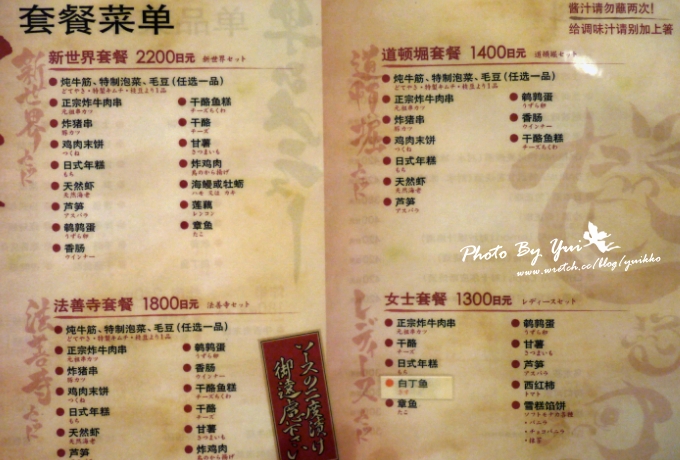 套餐菜单
新世界套餐 2200日元 新世界セット
炖牛筋、特制泡菜、毛豆(任选一品)
どてやき・特製キムチ・枝豆より1品
正宗炸牛肉串
元祖串カツ
炸猪串
豚カツ
鸡肉末饼
つくね
日式年糕
もち
天然虾
天然海老
芦笋
アスパラ
鹌鹑蛋
うずら卵
香肠
ウインナー
干酪鱼糕
チーズちくわ
干酪
チーズ
甘薯
さつまいも
炸鸡肉
鳥のから揚げ
海鳗或牡蛎
ハモ 又は カキ
莲藕
レンコン
章鱼
たこ
新世界セット
法善寺套餐 1800日元 法善寺セット
炖牛筋、特制泡菜、毛豆(任选一品)
どてやき・特製キムチ・枝豆より1品
正宗炸牛肉串
元祖串カツ
炸猪串
豚カツ
鸡肉末饼
つくね
日式年糕
もち
天然虾
天然海老
芦笋
鹌鹑蛋
うずら卵
香肠
ウインナー
干酪鱼糕
チーズちくわ
干酪
チーズ
甘薯
さつまいも
炸鸡肉
鳥のから揚げ
法善寺セット
ソースの二度漬け
御遠慮下さい
酱汁请勿蘸两次!
给调味汁请别加上箸
道顿堀套餐 1400日元 道頓堀セット
炖牛筋、特制泡菜、毛豆(任选一品)
どてやき・特製キムチ・枝豆より1品
正宗炸牛肉串
元祖串カツ
炸猪串
豚カツ
鸡肉末饼
つくね
日式年糕
もち
天然虾
天然海老
芦笋
アスパラ
鹌鹑蛋
うずら卵
香肠
ウインナー
干酪鱼糕
チーズちくわ
道頓堀セット
Photo By Yui
www.wretch.cc/blog/yuikko
女士套餐 1300日元 レディースセット
正宗炸牛肉串
元祖串カツ
干酪
チーズ
日式年糕
もち
白丁鱼
章鱼
たこ
鹌鹑蛋
うずら卵
甘薯
さつまいも
芦笋
アスパラ
西红柿
トマト
雪糕馅饼
・バニラ
・チョコバニラ
・抹茶
レディースセット